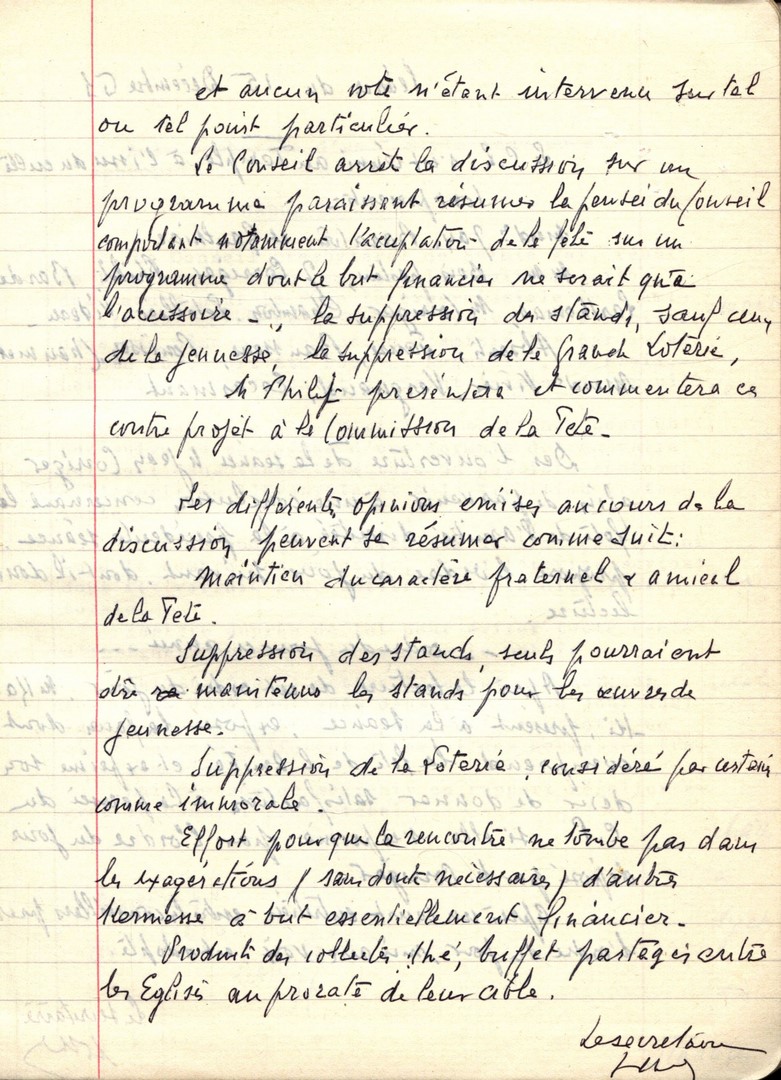 et aucun vote n'étant intervenu sur tel
ou tel point particulier.
Le Conseil arrêt la discussion sur un
programme paraissant résumer la pensée du Conseil
comportant notamment l'acceptation de la fête sur un
programme dont le but financier ne serait qu'a
l'accessoire -, la suppression des stands, sauf ceux
de la jeunesse, la suppression de la Grande Loterie,
M Philip présentera et commentera ce
contre projet à la Commission de la Fete -
Les différentes opinions emises au cours de la
discussion peuvent se résumer comme suit :
Maintien du caractère fraternel & amical
de la Fete.
Suppression des stands, seuls pourraient
être maintenus les stands pour les œuvres de
jeunesse.
Suppression de la Loterie, considéré par certains
comme immorale.
Effort pour que la rencontre ne tombe pas dans
les exagérations (sans doute nécessaires) d'autres
Kermesse à but essentiellement financier -
Produits des collectes, thé, buffet partagés entre
les Eglises au prorata de leur cible.
Le secretaire